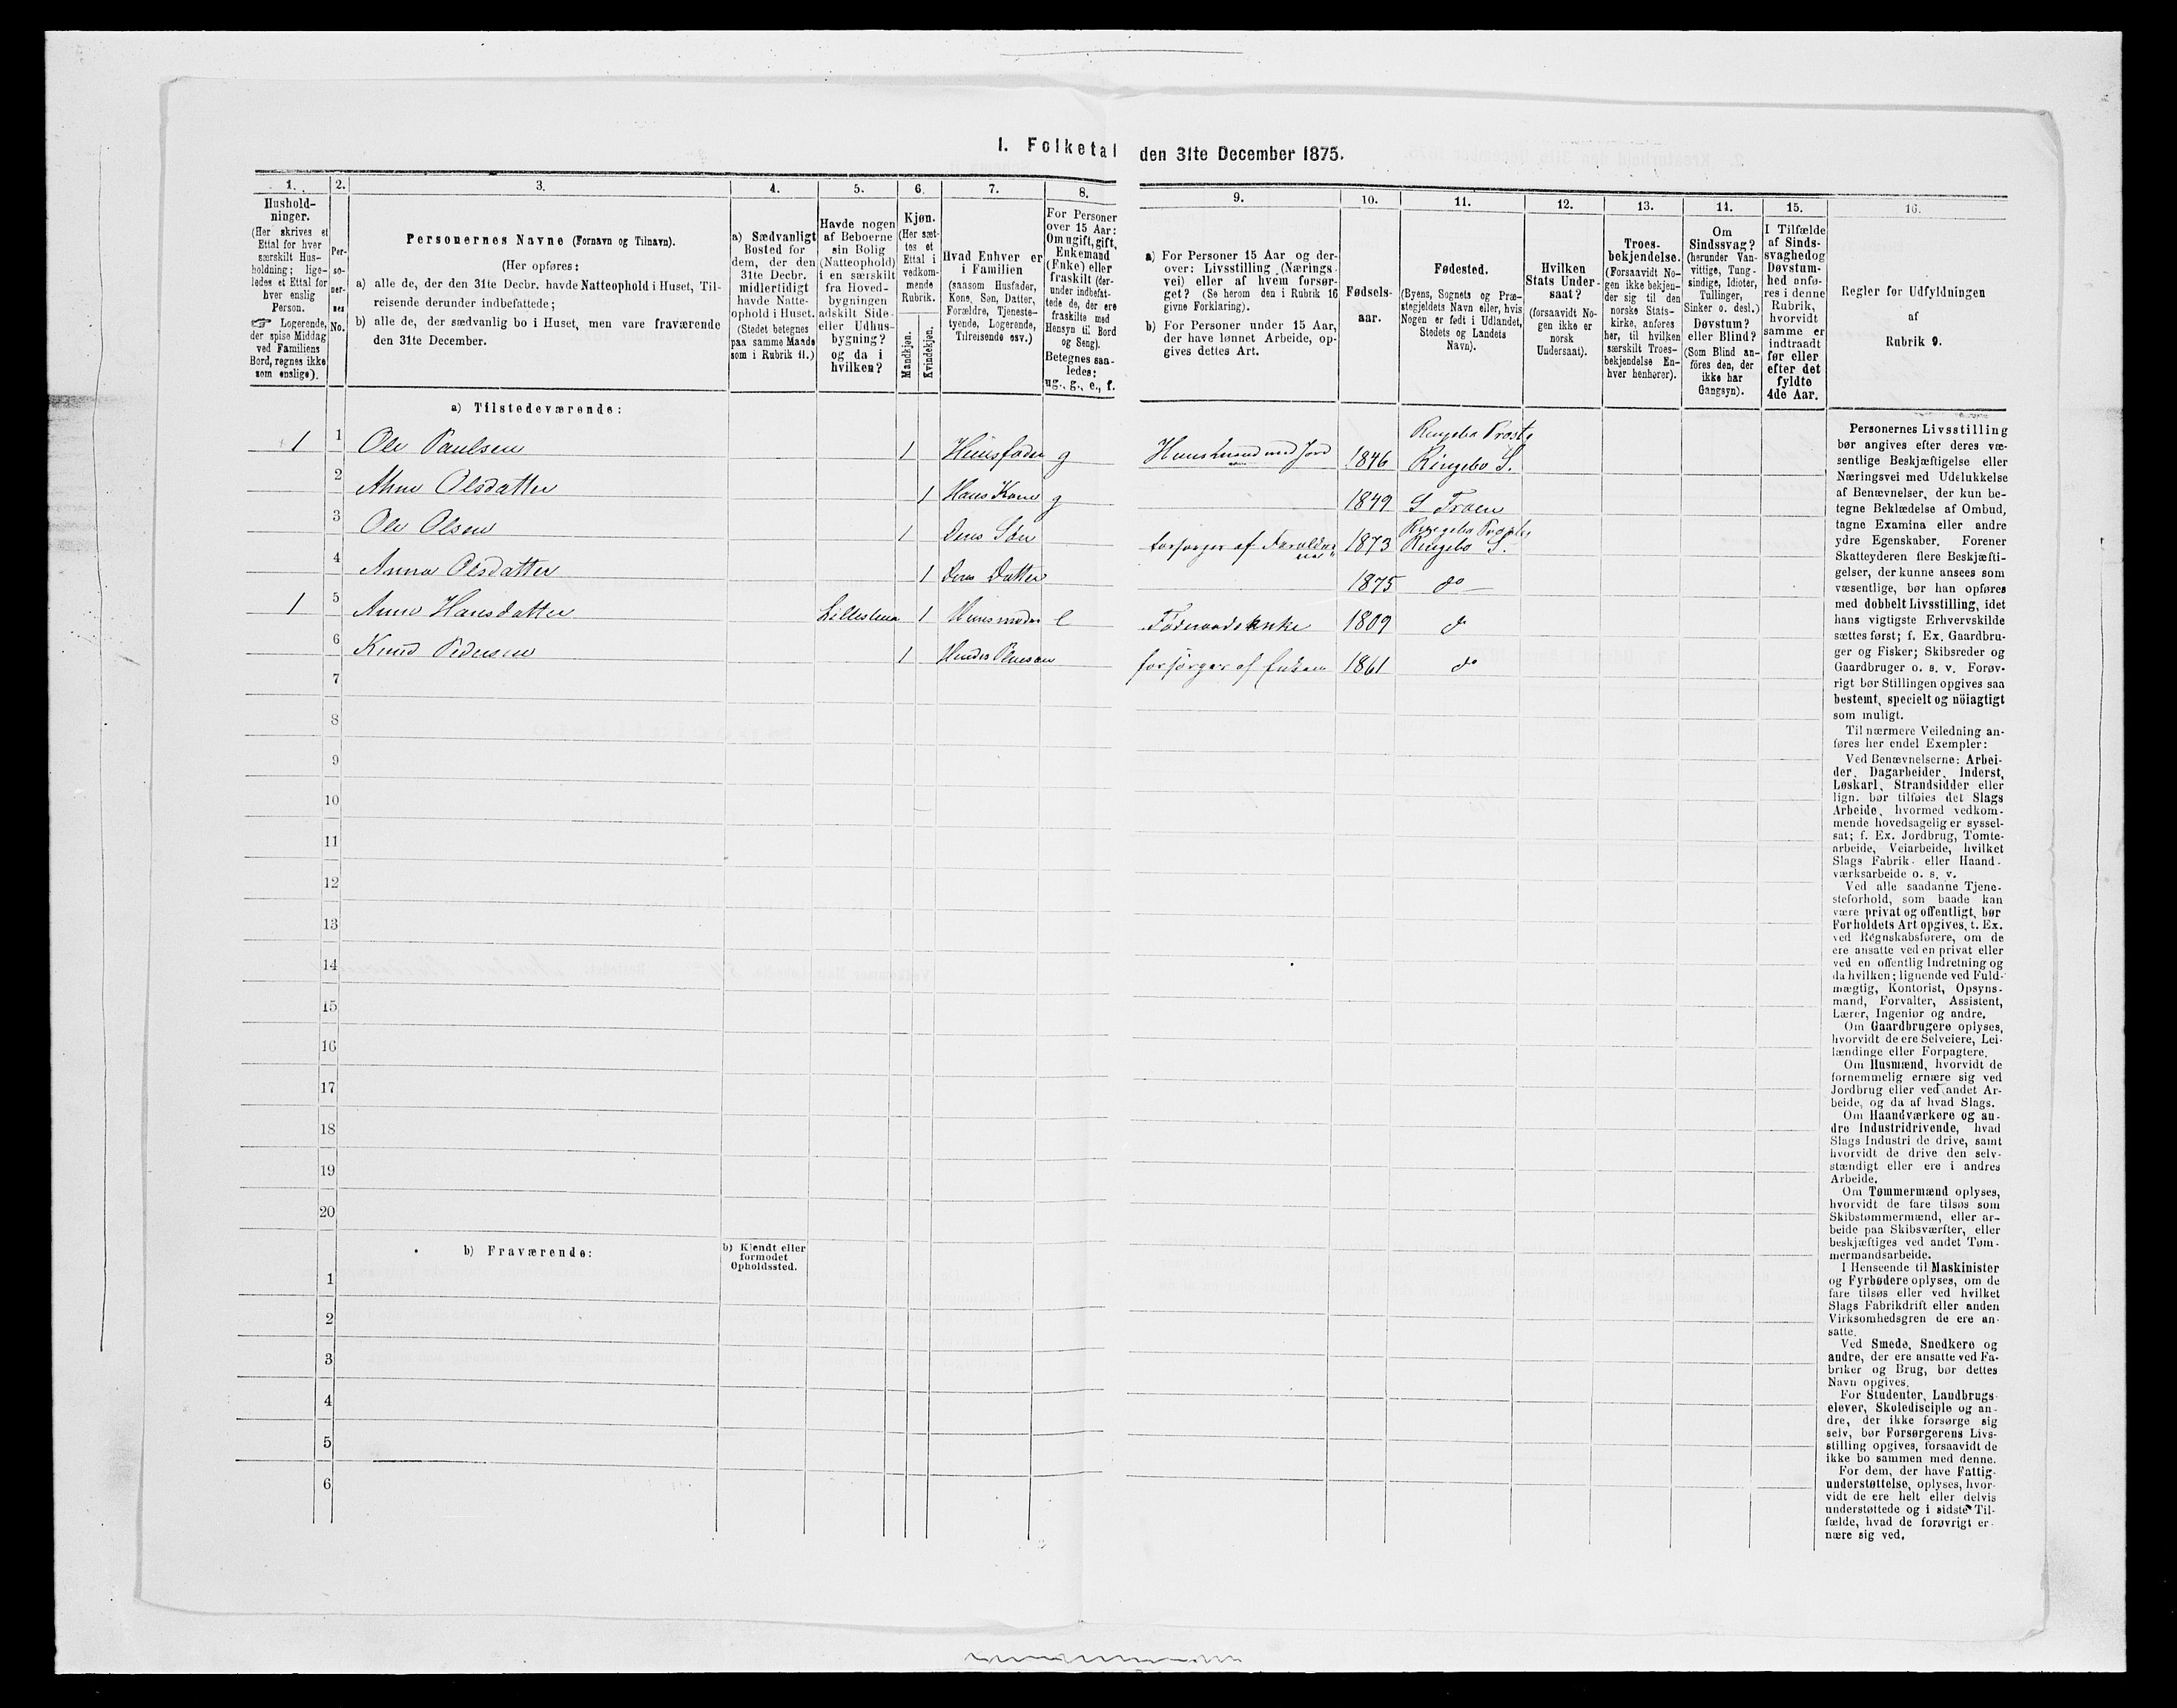 I. Folketal den 31te December 1875.
1.
Hushold-
ninger.
(Her skrives et
Ettal for hver
særskilt Hus-
holdning; lige-
ledes et Ettal for
hver enslig
Person.
☞ Logerende,
der spise Middag
ved Familiens
Bord, regnes ikke
som enslige).
2.
Per-
so-
ner-
nes
No.
3.
Personernes Navne (Fornavn og Tilnavn).
(Her opføres:
a) alle de, der den 31te Decbr. havde Natteophold i Huset, Til-
reisende derunder indbefattede;
b) alle de, der sædvanlig bo i Huset, men vare fraværende
den 31te December.
4.
a) Sædvanligt
Bosted for
dem, der den
31te Decbr.
midlertidigt
havde Natte-
ophold i Huset.
(Stedet betegnes
paa samme Maade
som i Rubrik 11.)
5.
Havde nogen
af Beboerne
sin Bolig
(Natteophold)
i en særskilt
fra Hoved-
bygningen
adskilt Side-
eller Udhus-
bygning?
og da i
hvilken?
6.
Kjøn.
(Her sæt-
tes et
Ettal i
vedkom-
mende
Rubrik.
Mandkjøn.
Kvindekjøn.
7.
Hvad Enhver er
i Familien
(saasom Husfader,
Kone, Søn, Datter,
Forældre, Tjeneste-
tyende, Logerende,
Tilreisende osv.)
8.
For Personer
over 15 Aar:
Om ugift, gift,
Enkemand
(Enke) eller
fraskilt (der-
under indbefat-
tede de, der ere
fraskilte med
Hensyn til Bord
og Seng).
Betegnes saa-
ledes:
ug., g., e., f.
9.
a) For Personer 15 Aar og der-
over: Livsstilling (Nærings-
vei) eller af hvem forsør-
get? (Se herom den i Rubrik 16
givne Forklaring).
b) For Personer under 15 Aar,
der have lønnet Arbeide, op-
gives dettes Art.
10.
Fødsels-
aar.
11.
Fødested.
(Byens, Sognets og Præ-
stegjeldets Navn eller, hvis
Nogen er født i Udlandet,
Stedets og Landets
Navn).
12.
Hvilken
Stats Under-
saat?
(forsaavidt No-
gen ikke er
norsk
Undersaat).
13.
Troes-
bekjendelse.
(Forsaavidt No-
gen ikke bekjen-
der sig til den
norske Stats-
kirke, anføres
her, til hvilken
særskilt Troes-
bekjendelse En-
hver henhører).
14.
Om
Sindssvag?
(herunder Van-
vittige, Tung-
sindige, Idioter,
Tullinger,
Sinker o. desl.)
Døvstum?
eller Blind?
(Som Blind an-
föres den, der
ikke har
Gangsyn).
15.
I Tilfælde
af Sinds-
svaghed og
Døvstum-
hed anfø-
res i denne
Rubrik,
hvorvidt
samme er
indtraadt
før eller
efter det
fyldte
4de Aar.
16.
Regler for Udfyldningen
af
Rubrik 9.
a) Tilstedeværende:
1 1 Ole Paulsen 1 Huusfader g Huusmand med Jord 1846 Ringebo Præstg Ringebo S.
2 Ahne Olsdatter 1 Hans Kone g 1849 S Froen
3 Ole Olsen 1 Deres Søn forsørges af Forældrene 1873 Ringebo Præstg Ringebo S.
4 Anna Olsdatter 1 Deres Datter 1875 do
1 5 Anne Hansdatter 1 Huusmoder e Føderaadsenke 1809 do
6 Knud Pedersen 1 forsørges af Enken 1861 do
7
8
9
10
11
12
13
14
15
16
17
18
19
20
b) Fraværende:
b) Kjendt eller
formodet
Opholdssted.
1
2
3
4
5
6
Personernes Livsstilling
bør angives efter deres væ-
sentlige Beskjæftigelse eller
Næringsvei med Udelukkelse
af Benævnelser, der kun be-
tegne Beklædelse af Ombud,
tagne Examina eller andre
ydre Egenskaber. Forener
Skatteyderen flere Beskjæfti-
gelser, der kunne ansees som
væsentlige, bør han opføres
med dobbelt Livsstilling, idet
hans vigtigste Erhvervskilde
sættes først; f. Ex. Gaardbru-
ger og Fisker; Skibsreder og
Gaardbruger o. s. v. Forøv-
rigt bør Stillingen opgives saa
bestemt, specielt og nöiagtigt
som muligt.
Til nærmere Veiledning an-
føres her endel Exempler:
Ved Benævnelserne: Arbei-
der, Dagarbeider, Inderst,
Løskarl, Strandsidder eller
lign. bør tilføies det Slags
Arbeide, hvormed vedkom-
mende hovedsagelig er syssel-
sat; f. Ex. Jordbrug, Tomte-
arbeide, Veiarbeide, hvilket
Slags Fabrik- eller Haand-
værksarbeide o. s. v.
Ved alle saadanne Tjene-
steforhold, som baade kan
være privat og offentligt, bør
Forholdets Art opgives, t. Ex.
ved Regnskabsførere, om de
ere ansatte ved en privat eller
ved en offentlig Indretning og
da hvilken; lignende ved Fuld-
mægtig, Kontorist, Opsyns-
mand, Forvalter, Assistent,
Lærer, Ingeniør og andre.
Om Gaardbrugere oplyses,
hvorvidt de ere Selveiere, Lei-
lændinge eller Forpagtere.
Om Husmænd, hvorvidt de
fornemmelig ernære sig ved
Jordbrug eller ved andet Ar-
beide, og da af hvad Slags.
Om Haandværkere og an-
dre Industridrivende, hvad
Slags Industri de drive, samt
hvorvidt de drive den selv-
stændigt eller ere i andres
Arbeide.
Om Tømmermænd oplyses,
hvorvidt de fare tilsøs som
Skibstømmermænd, eller ar-
beide paa Skibsværfter, eller
beskjæftiges ved andet Tøm-
mermandsarbeide.
I Henseende til Maskinister
og Fyrbødere oplyses, om de
fare tilsøs eller ved hvilket
Slags Fabrikdrift eller anden
Virksomhedsgren de ere an-
satte.
Ved Smede, Snedkere og
andre, der ere ansatte ved Fa-
briker og Brug, bør dettes
Navn opgives.
For Studenter, Landbrugs-
elever, Skoledisciple og an-
dre, der ikke forsørge sig
selv, bør Forsørgerens Livs-
stilling opgives, forsaavidt de
ikke bo sammen med denne.
For dem, der have Fattig-
understøttelse, oplyses, hvor-
vidt de ere helt eller delvis
understøttede og i sidste Til-
fælde, hvad de forøvrigt er-
nære sig ved.